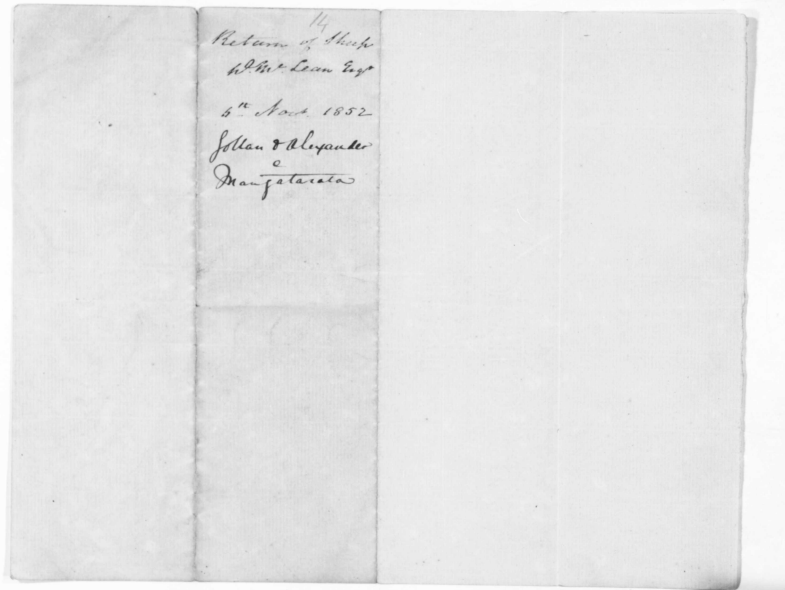 14
Return of Sheep
McLean Esqr
Novr 1852
Gollan & Alexander
Mangatarata